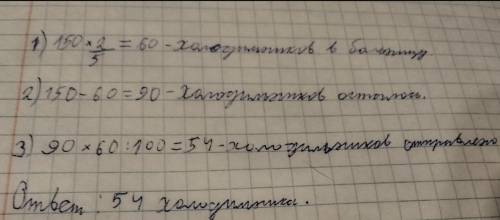 1) 150 × 2/5 = 60 - холодильников в больницу.
2) 150 - 60 = 90 - Холодильников осталось.
3) 90 × 60 : 100 = 54 - холодильников отправлено
Ответ : 54 холодильника.